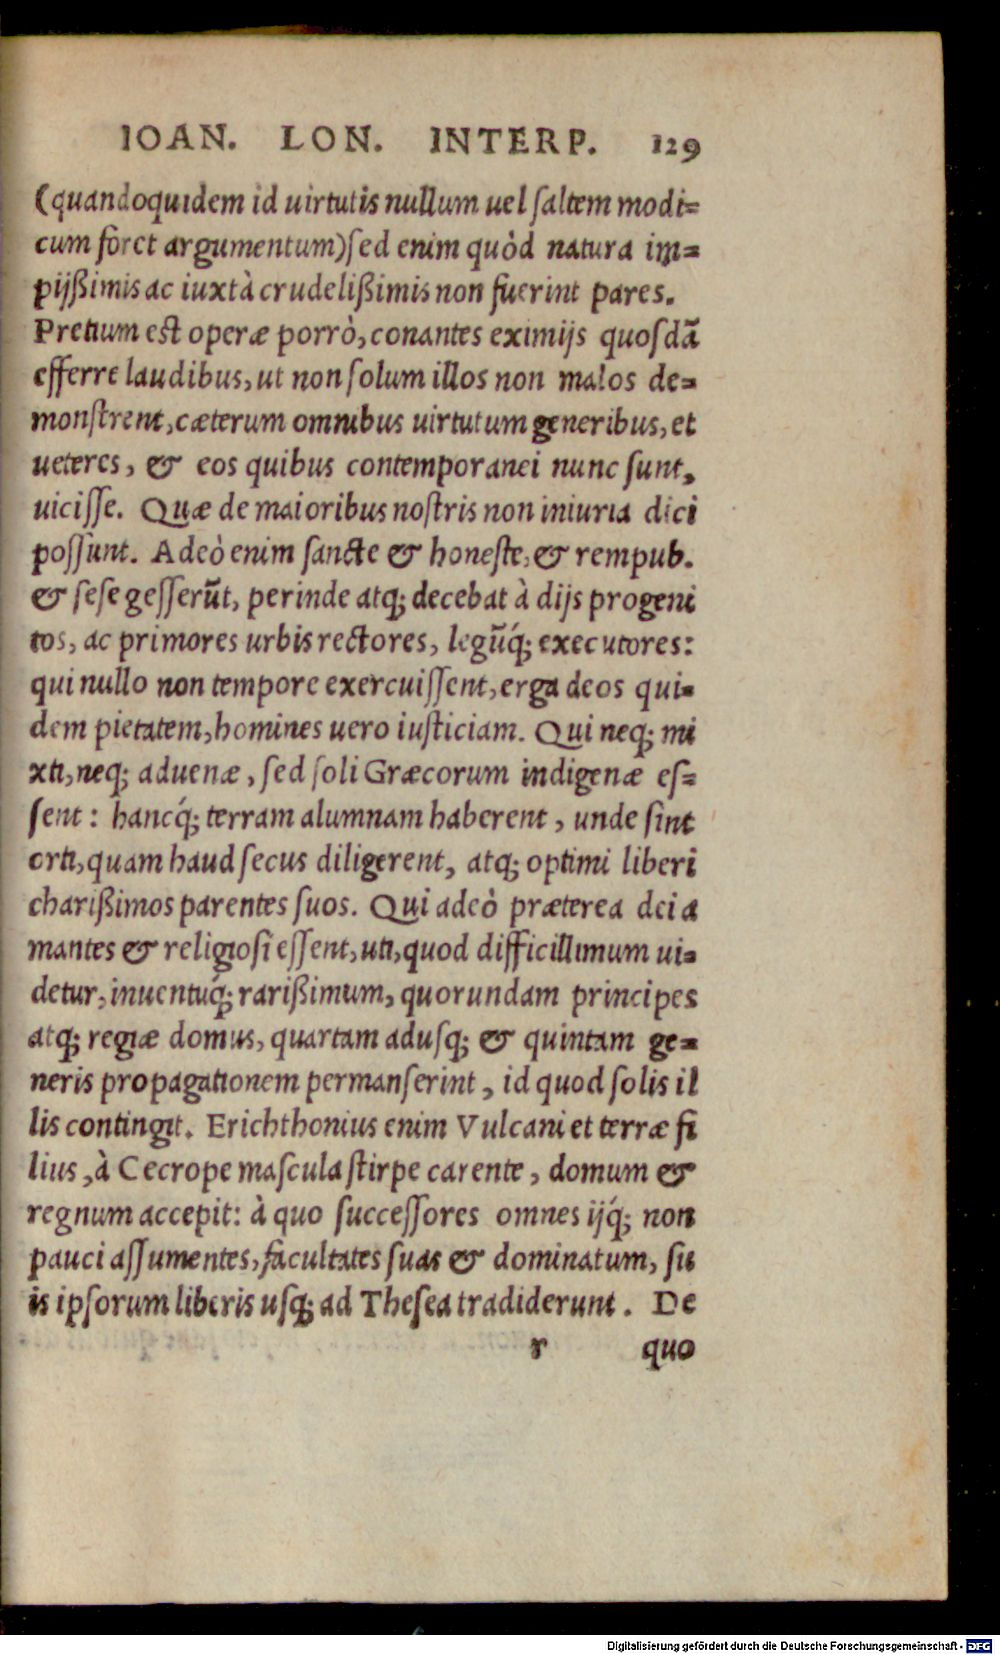 IOAN. LON. INTERP. 129
(quandoquidem id uirtutis nullum uel ſaltem modi=
cum foret argumentum)ſed enim quòd natura im=
pijßimis ac iuxtà crudelißimis non fuerint pares.
Pretium est operæ porrò, conantes eximijs quoſdã
efferre laudibus, ut non ſolum illos non malos de=
monſtrent, cæterum omnibus uirtutum generibus, et
ueteres, & eos quibus contemporanei nunc ſunt,
uiciſſe. Quæ de maioribus noſtris non iniuria dici
poſſunt. Adeò enim ſancte & honeſte, & rempub.
& ſeſe geſſerũt, perinde atq; decebat à dijs progeni
tos, ac primores urbis rectores, legũq́; executores:
qui nullo non tempore exercuiſſent, erga deos qui=
dem pietatem, homines uero iuſticiam. Qui neq; mi
xti, neq; aduenæ, ſed ſoli Græcorum indigenæ eſ=
ſent: hancq́; terram alumnam haberent, unde ſint
orti, quam haud ſecus diligerent, atq; optimi liberi
charißimos parentes ſuos. Qui adeò præterea dei a
mantes & religioſi eſſent, uti, quod difficillimum ui=
detur, inuentuq́; rarißimum, quorundam principes
atq; regiæ domus, quartam aduſq; & quintam ge=
neris propagationem permanſerint, id quod ſolis il
lis contingit. Erichthonius enim Vulcani et terræ fi
lius, à Cecrope maſcula ſtirpe carente, domum &
regnum accepit: à quo ſucceſſores omnes ijq́; non
pauci aſſumentes, facultates ſuas & dominatum, ſu
is ipſorum liberis uſq; ad Theſea tradiderunt. De
r quo
Digitalisierung gefördert durch die Deutsche Forschungsgemeinschaft - DFG